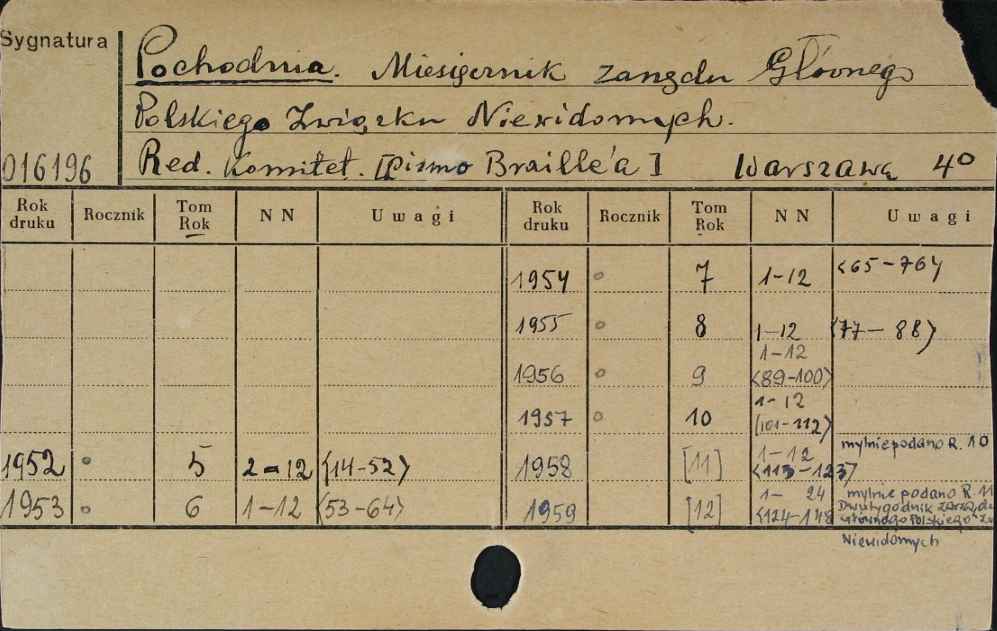 Sygnatura
Pochodnia. Miesięcznik Zarządu Głównego
Polskiego Związku Niewidomych.
016196 Red. Komitet. [Pismo Braille'a] Warszawa 4°
Rok druku Rocznik Tom Rok NN Uwagi Rok druku Rocznik Tom Rok NN Uwagi
1954 ° 7 1-12 <65-76>
1955 ° 8 1-12 <77-88>
1956 ° 9 1-12 <89-100>
1957 ° 10 1-12 [101-112>
1952 ° 5 2-12 <14-52> 1958 [11] 1-12 <113-123> mylnie podano R. 10
1953 ° 6 1-12 <53-64> 1959 [12] 1-24 <124-148 mylnie podano R 11
Dwutygodnik Zarządu
Głównego Polskiego Zw
Niewidomych